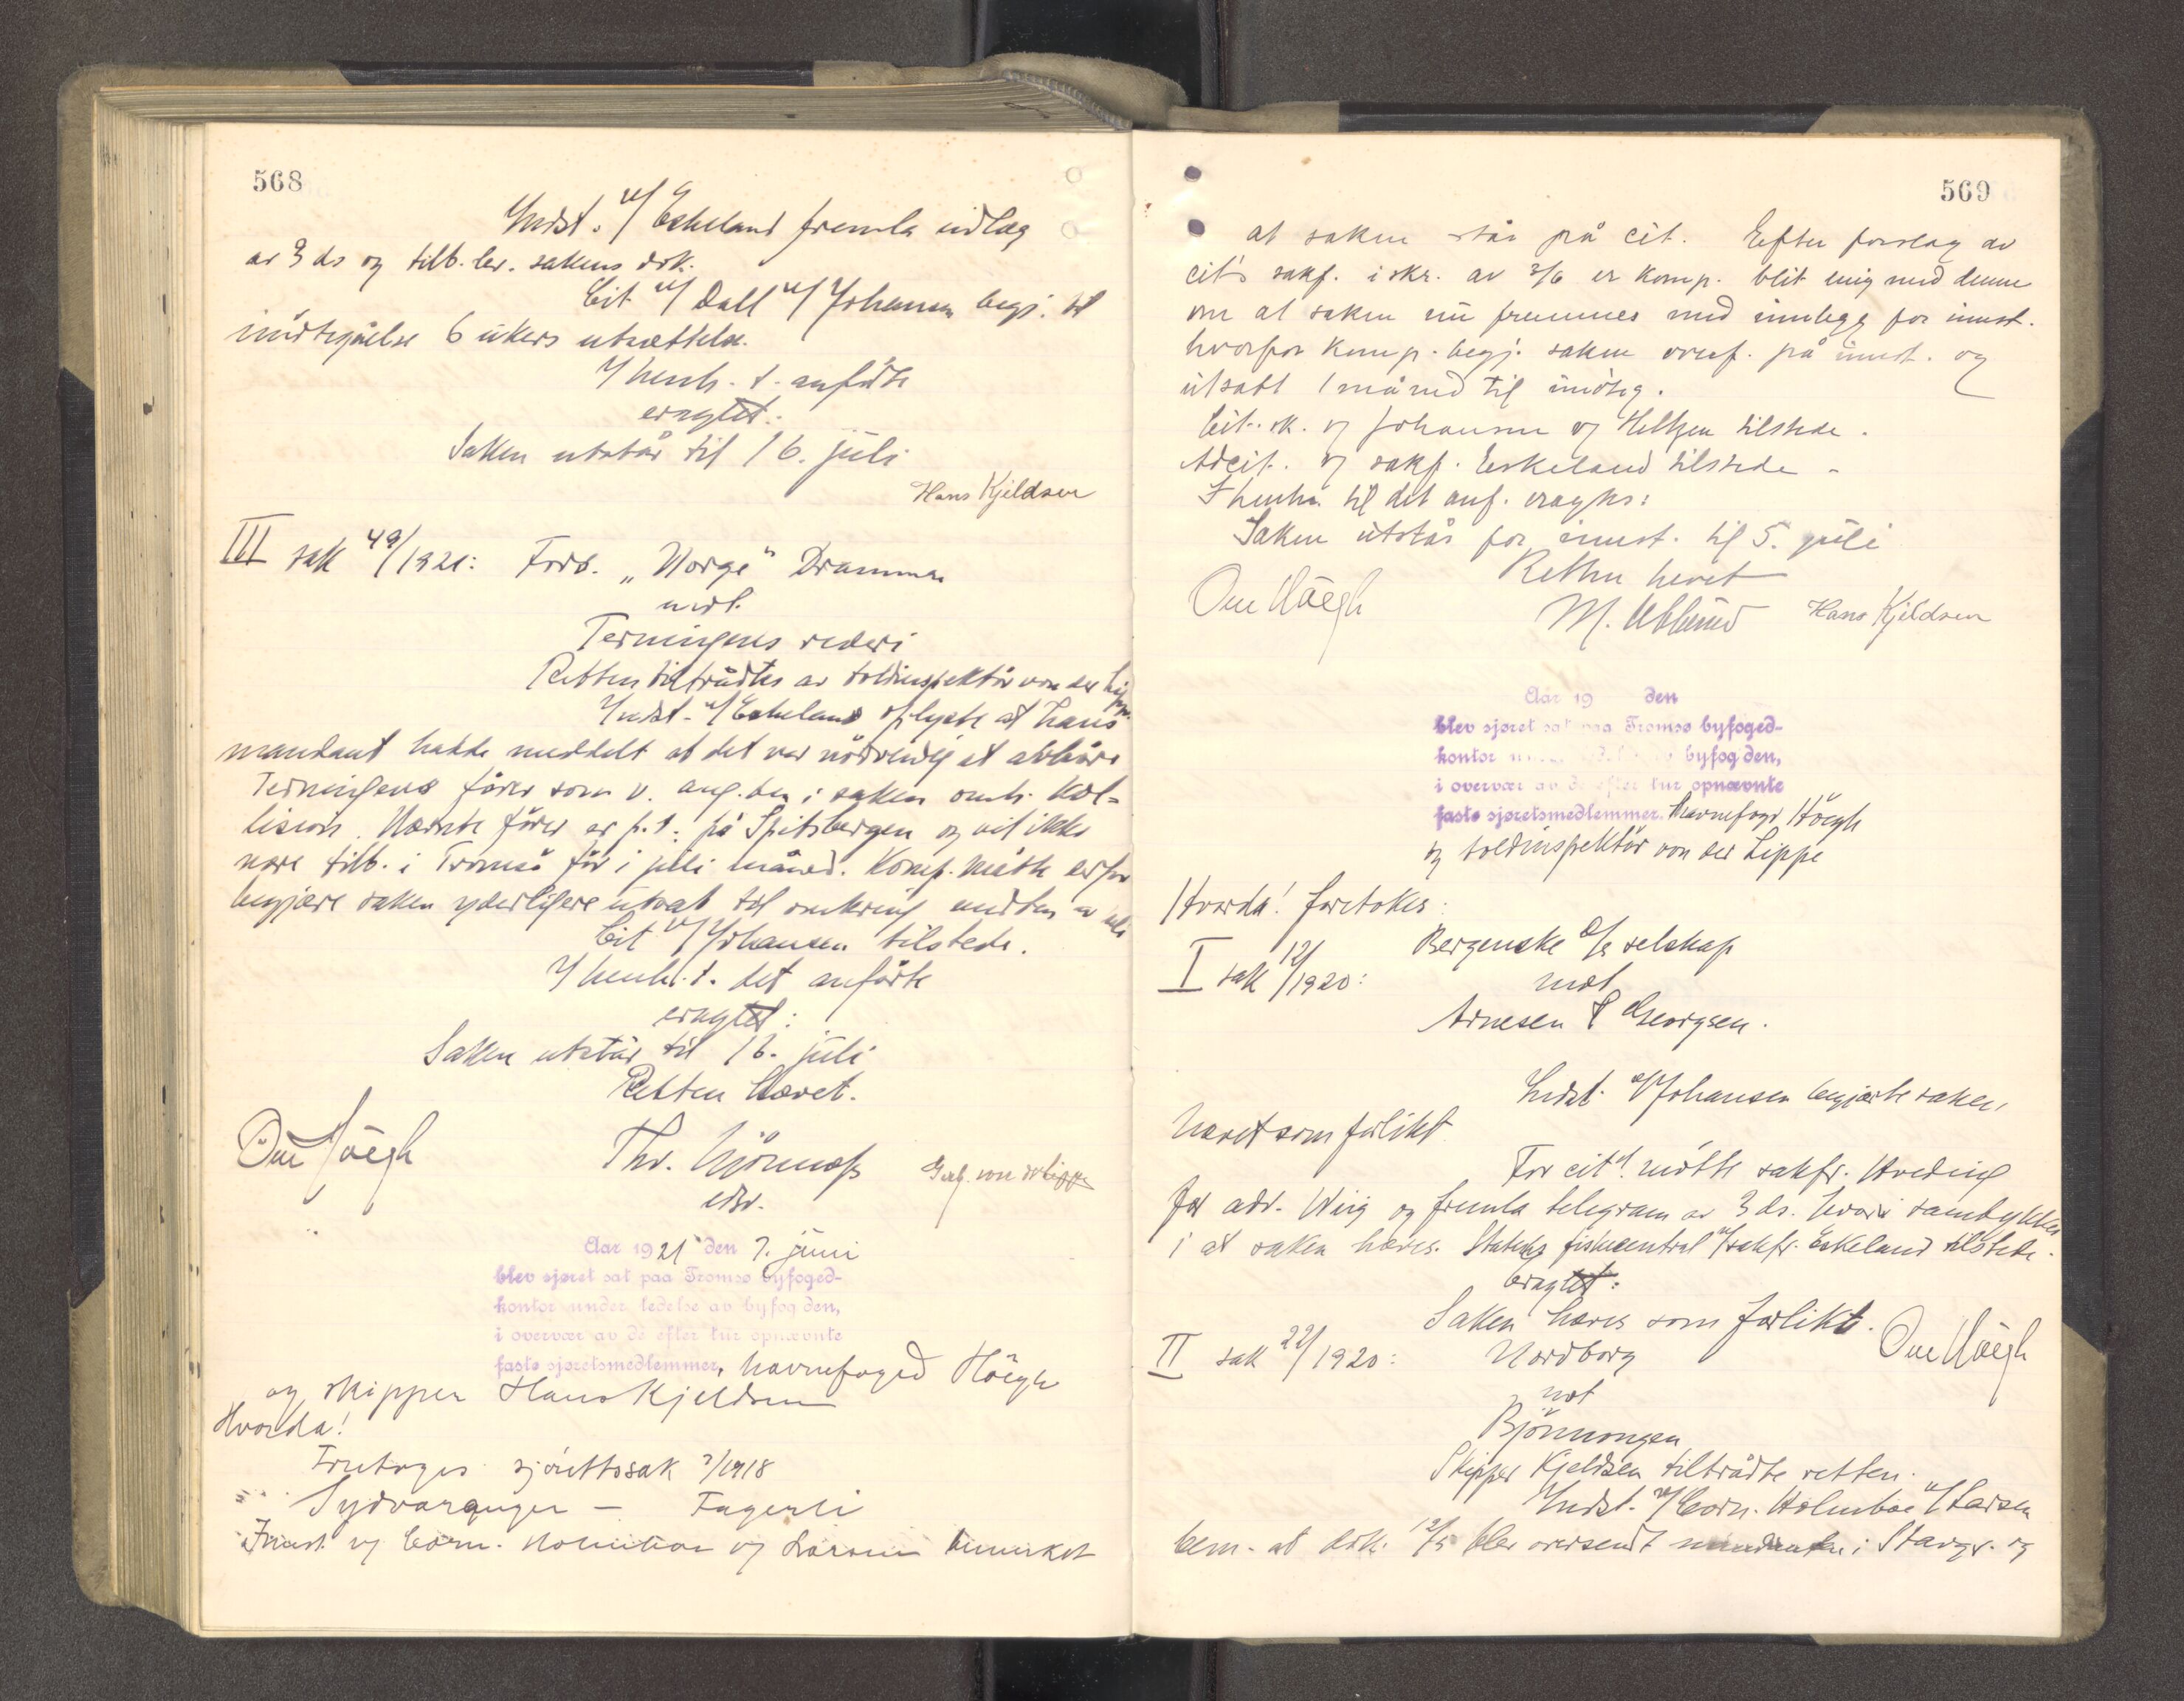 568
Indst. v/ Eskeland fremla indlæg
av 3 ds og tilb.lev. sakens dok.
Cit v/ Dall v/ Johansen begj. til
imøtegåelse 6 ukers utsættelse.
I henh. t. anførte
eragtet:
Saken utstår til 16. juli
Hans Kjeldsen
III sak 49/1921: Fors. "Norge" Drammen
mot
Terningens rederi
Retten tiltrådtes av toldinspektør von der Lippe.
Indst. v/ Eskeland oplyste at hans
mandant hadde meddelt at det var nödvendig at avhöre
Terningens förer som v. ang. den i saken omh. kol-
lision. Nævnte förer er p.t. på Spitsbergen og vil ikke
være tilb. i Tromsö för i juli måned. Komp. måtte derfor
begjære saken yderligere utsat til omkring midten av juli
Cit v/ Johansen tilstede.
I henh. t. det anförte
eragtet:
Saken utstår til 16. juli
Retten hævet.
Ove Höegh
Thv. 
edsv.
von der Lippe
Aar 1921 den 7. juni
blev sjøret sat paa Tromsø byfoged-
kontor under ledelse av byfogden,
i overvær av de efter tur opnævnte
faste sjøretsmedlemmer, havnefoged Höegh
og skipper Hans Kjeldsen
Hvorda!
Foretoges sjörettssak 3/1918
Sydvaranger — Fagerli
Innst. v/ Corn. Holmboe v/ Larsen bemerket
569
at saken står på cit. Efter forslag av
cit's sakf. i skr. av 3/6 er komp. blit enig med denne
om at saken nu fremmes med innlegg for innst.
hvorfor komp. begj. saken overf. på innst. og
utsatt 1 måned til imöteg.
Cit. sk. v/ Johansen v/ Heltzen tilstede.
Adcit. v/ sakf. Eskeland tilstede -
I henh. til det anf. eragtes:
Saken utstår for innst. til 5. juli
Retten hevet
Ove Höegh
M. Ublund
Hans Kjeldsen
Aar 19 den
blev sjøret sat paa Tromsø byfoged-
kontor under ledelse av byfogden,
i overvær av de efter tur opnævnte
faste sjøretsmedlemmer. havnefoged Höegh
og toldinspektör von der Lippe
Hvorda! foretokes:
I sak 12/1920:
Bergenske D/S selskap
mot
Arnesen & Georgsen.
Indst. v/ Johansen begjærte saken
hævet som forlikt
For cit. mötte sakfr. Hveding
for adv. Wiig og fremla telegram av 3 ds. hvori samtykkes
i at saken hæves. Statens fiskecentral v/ sakfr. Eskeland tilstede.
eragtet:
Saken hæves som forlikt.
Ove Höegh
II sak 22/1920:
Nordborg
mot
Björnungen
Skipper Kjeldsen tiltrådte retten.
Indst. v/ Corn. Holmboe v/ Larsen
bem. at dok. 12/5 blev oversendt mandanten i Stavgr. og